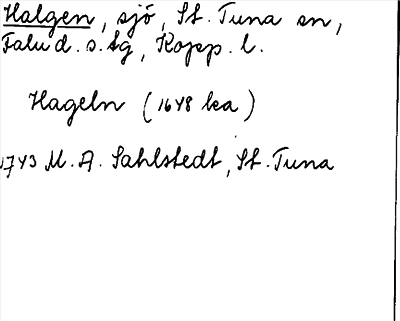 Halgen, sjö, St. Tuna sn,
Falu d. s. tg, Kopp. l.
Hageln (1648 lea)
1743 M. A. Sahlstedt, St. Tuna